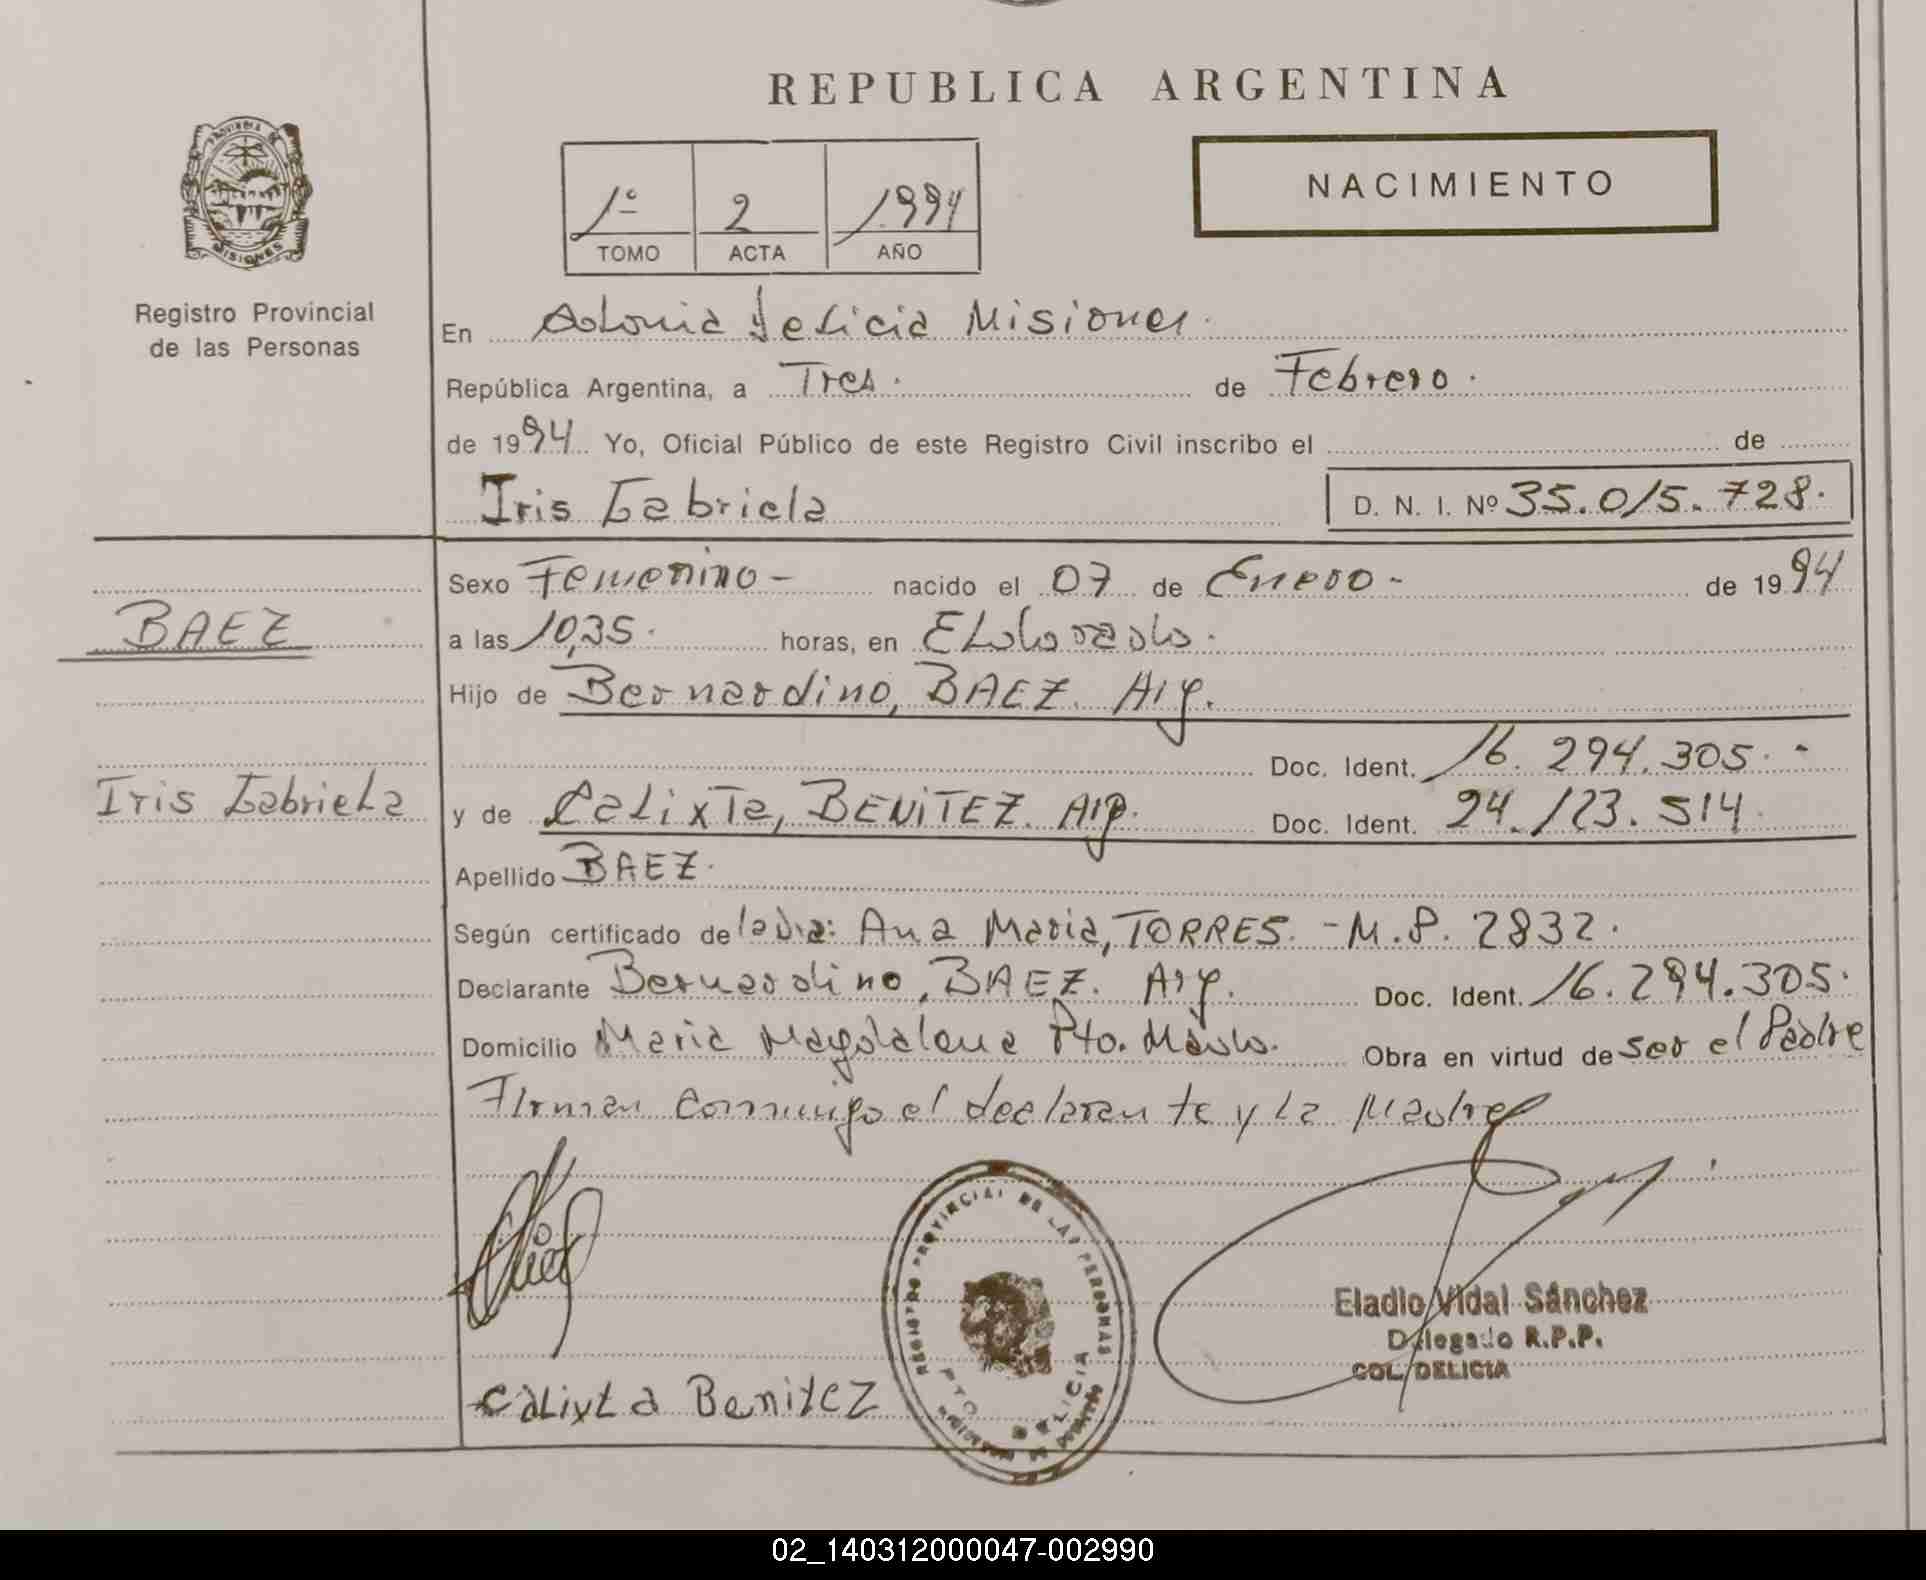 REPUBLICA ARGENTINA
PROVINCIA DE
MISIONES
Registro Provincial
de las Personas
1º 2 1994
TOMO ACTA AÑO
NACIMIENTO
En Colonia Delicia Misiones.
República Argentina, a Tres. de Febrero.
de 1994 Yo, Oficial Público de este Registro Civil inscribo el de
Iris Gabriela D. N. I. Nº 35.015.728.
Sexo Femenino - nacido el 07 de Enero - de 1994
BAEZ
a las 10,35. horas, en Eldorado.
Hijo de Bernardino, BAEZ. Arg.
Doc. Ident. 16.294.305. -
Iris Gabriela
y de Calixta, BENITEZ. Arg. Doc. Ident. 24.123.514.
Apellido BAEZ.
Según certificado de la Dra: Ana Maria, TORRES. - M.P. 2832.
Declarante Bernardino, BAEZ. Arg. Doc. Ident. 16.294.305.
Domicilio Maria Magdalena Pto. Mado. Obra en virtud de ser el Padre
Firman conmigo el declarante y la Madre
REGISTRO PROVINCIAL DE LAS PERSONAS
PTO DELICIA
Eladio Vidal Sánchez
Delegado R.P.P.
COL. DELICIA
Calixta Benitez
02_140312000047-002990